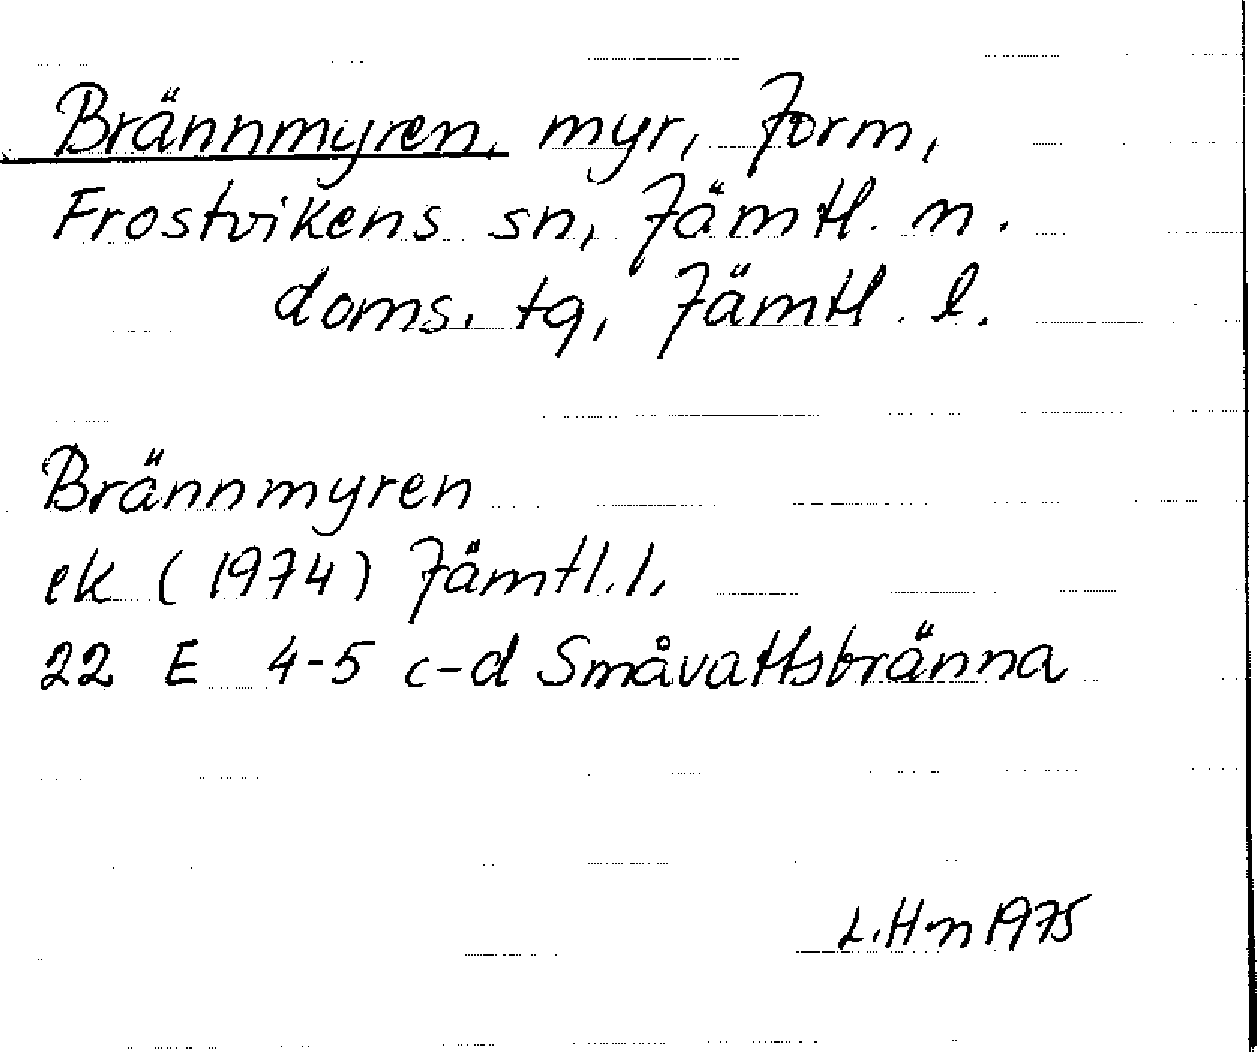 Brännmyren, myr, Jorm,
Frostvikens sn, Jämtl. n.
doms. tg, Jämtl. l.
Brännmyren
ek (1974) Jämtl. l.
22 E 4-5 c-d Småvattsbränna
L.H-n 1975